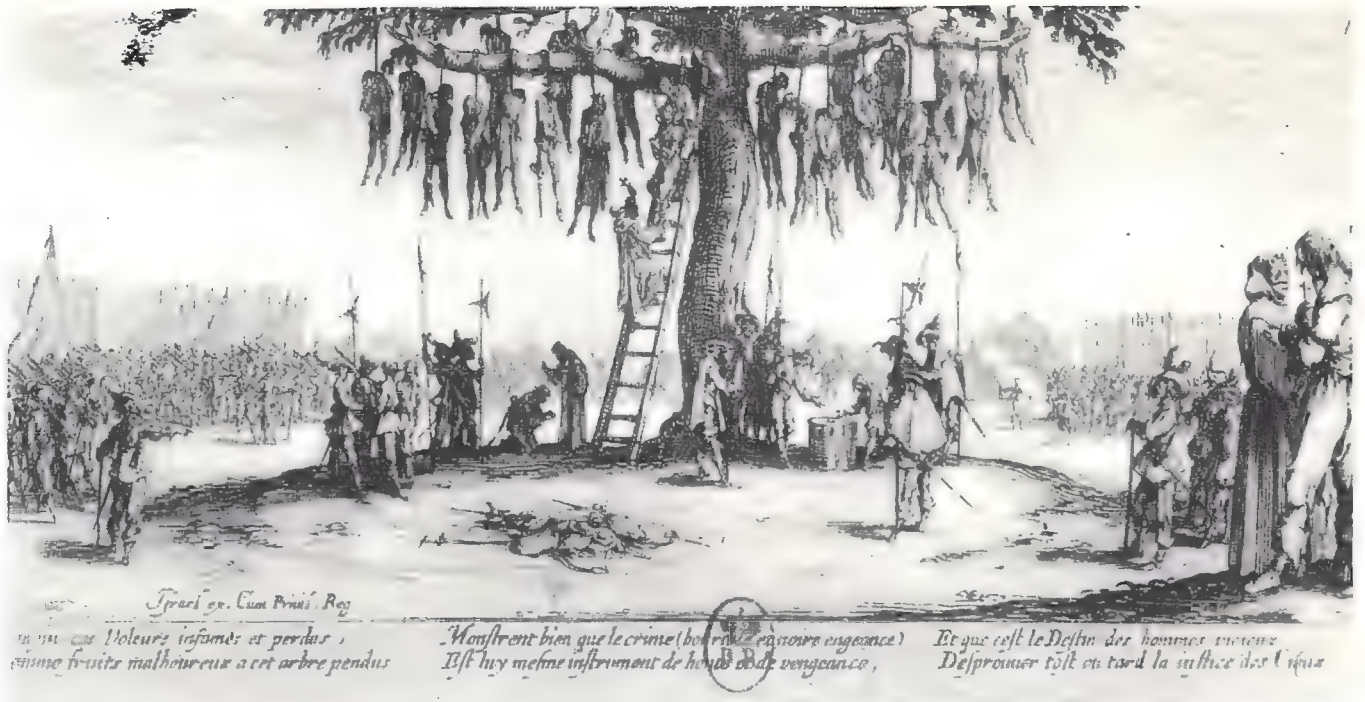 Israel ex. Cum Privil. Reg
ces Voleurs infames et perdus ,
fruits malheureux a cet arbre pendus
Monstrent bien que le crime ( et noire engeance)
Est luy mesme instrument de honte et de vengeance ,
Et que cest le Destin des hommes vicieux
Desprouver tost ou tard la iustice des Cieux